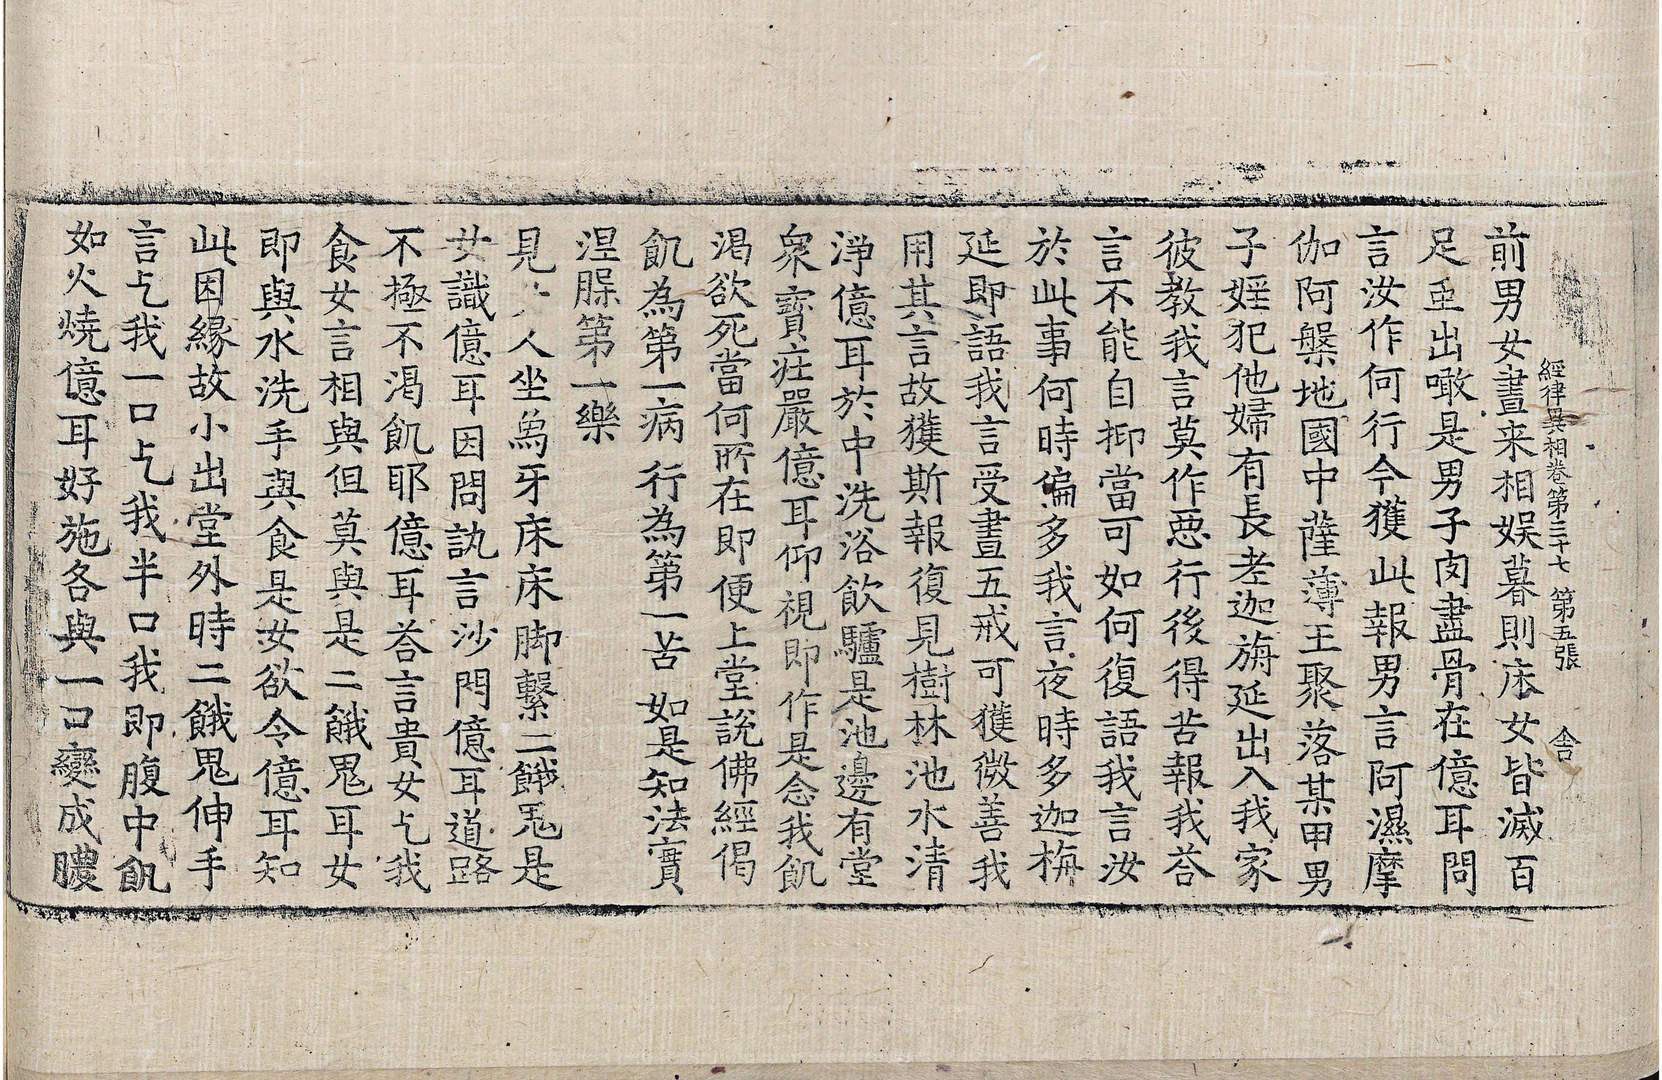 經律異相卷第三十七 第五張 舎
前男女晝来相娯暮則床女皆滅百
足虫出噉是男子肉盡骨在億耳問
言汝作何行今獲此報男言阿濕摩
伽阿槃地國中薩薄王聚落某甲男
子婬犯他婦有長老迦旃延出入我家
彼教我言莫作惡行後得苦報我荅
言不能自抑當可如何復語我言汝
於此事何時偏多我言夜時多迦旃
延即語我言受晝五戒可獲微善我
用其言故獲斯報復見樹林池水清
淨億耳於中洗浴飲驢是池邊有堂
衆寶莊嚴億耳仰視即作是念我飢
渴欲死當何所在即便上堂說佛經偈
飢為第一病 行為第一苦 如是知法寶
涅槃第一樂
見 人坐為牙床床脚繫二餓鬼是
女識億耳因問訊言沙門億耳道路
不極不渴飢耶億耳荅言貴女乞我
食女言相與但莫與是二餓鬼耳女
即與水洗手與食是女欲令億耳知
此因緣故小出堂外時二餓鬼伸手
言乞我一口乞我半口我即腹中飢
如火燒億耳好施各與一口變成膿